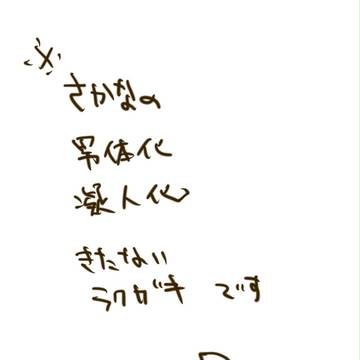 ※
さかなの
男体化
凝人化
きたない
ラクガキ です